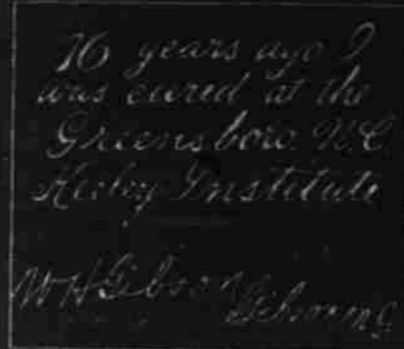 16 years ago I
was cured at the
Greensboro N.C.
Keeley Institute
W H Gibson Gibson N.C.